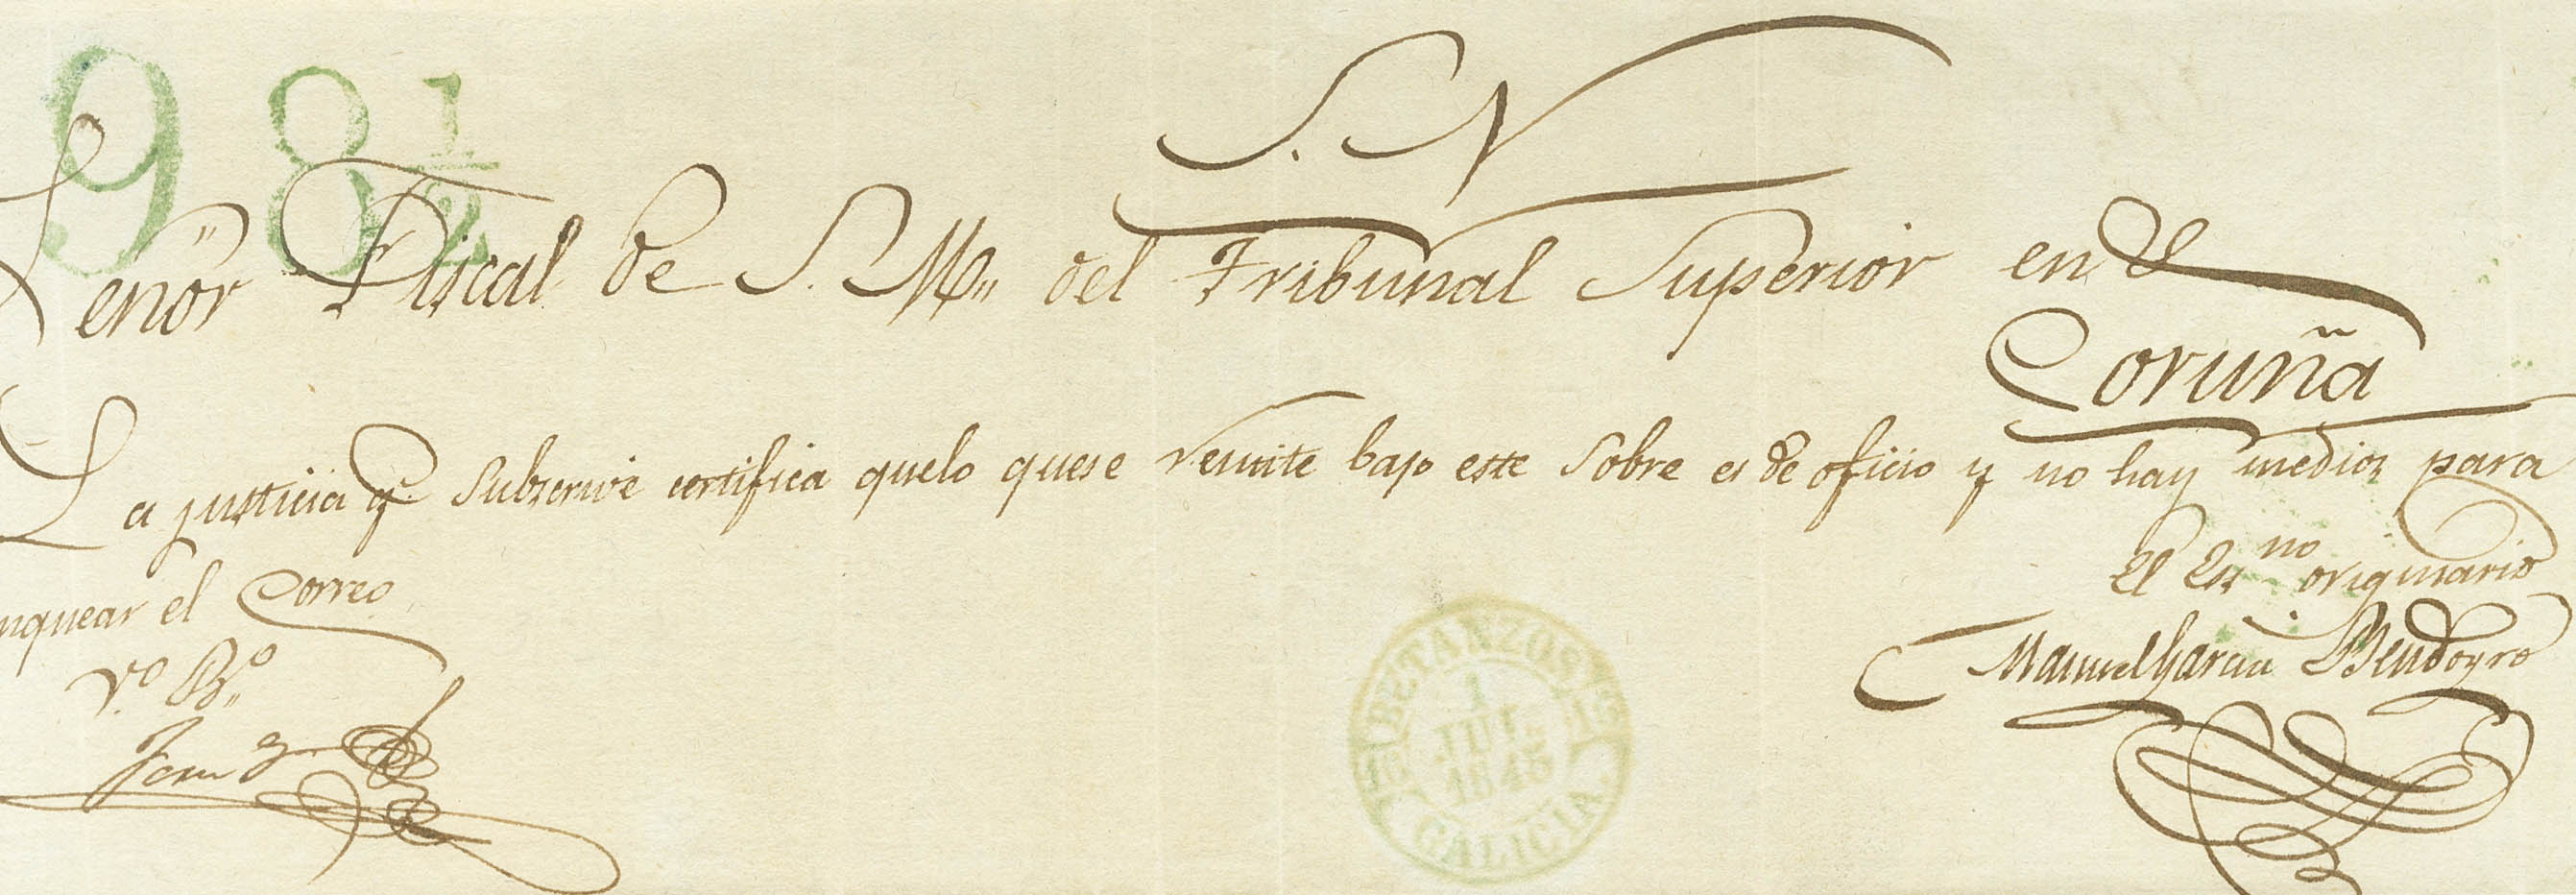 9 8 1/2
S. N
Señor Fiscal de S. M. del Tribunal Superior en la
Coruña
La justicia q.e Subscrive certifica quelo quese remite bajo este Sobre es de oficio y no hay medios para
nquear el Correo
El Esno originario
V.o B.o
Manuel Garcia Bendoyro
BETANZOS
1
JUL.
1845
GALICIA.